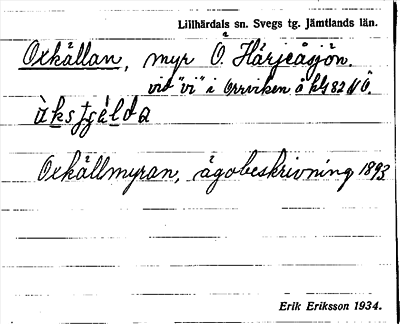 Lillhärdals sn. Svegs tg. Jämtlands län.
Oxkällan, myr Ö. Härjeåsjön.
vid "vi" i Orrviken å kbl 82 N Ö.
Oxkällmyran, ägobeskrivning 1893.
Erik Eriksson 1934.